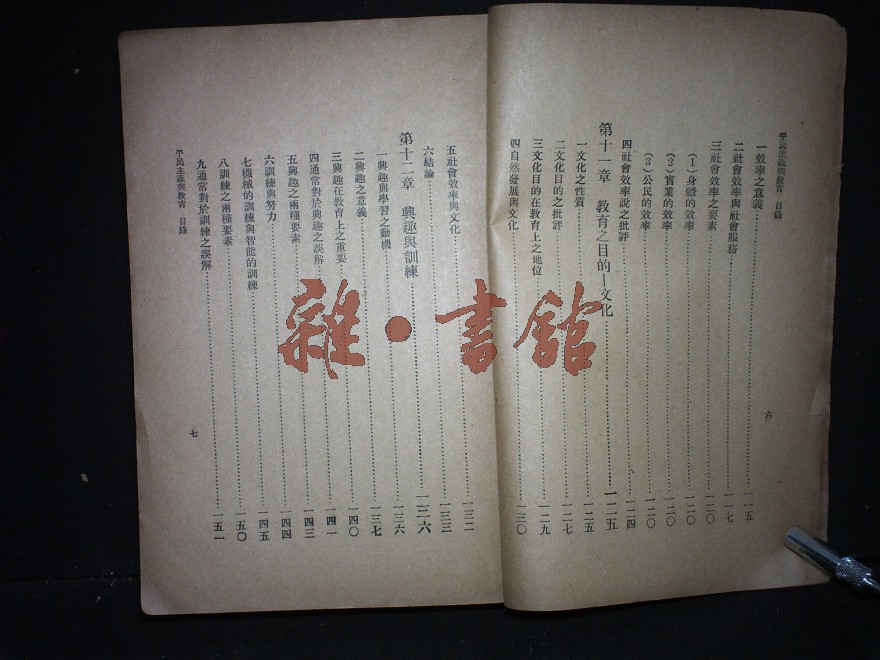 平民主義與教育 目錄
一效率之意義……一一五
二社會效率與社會服務……一一七
三社會效率之要素……一二〇
(1)身體的效率……一二〇
(2)實業的效率……一二〇
(3)公民的效率……一二〇
四社會效率說之批評……一二四
第十一章 教育之目的—文化……一二五
一文化之性質……一二五
二文化目的之批評……一二七
三文化目的在教育上之地位……一二九
四自然發展與文化……一三〇
六
五社會效率與文化……一三二
六結論……一三三
第十二章 興趣與訓練……一三六
一興趣與學習之動機……一三六
二興趣之意義……一三七
三興趣在教育上之重要……一四〇
四通常對於興趣之誤解……一四一
五興趣之兩種要素……一四三
六訓練與努力……一四四
七機械的訓練與智能的訓練……一四五
八訓練之兩種要素……一五〇
九通常對於訓練之誤解……一五一
平民主義與教育 目錄
七
雜·書館